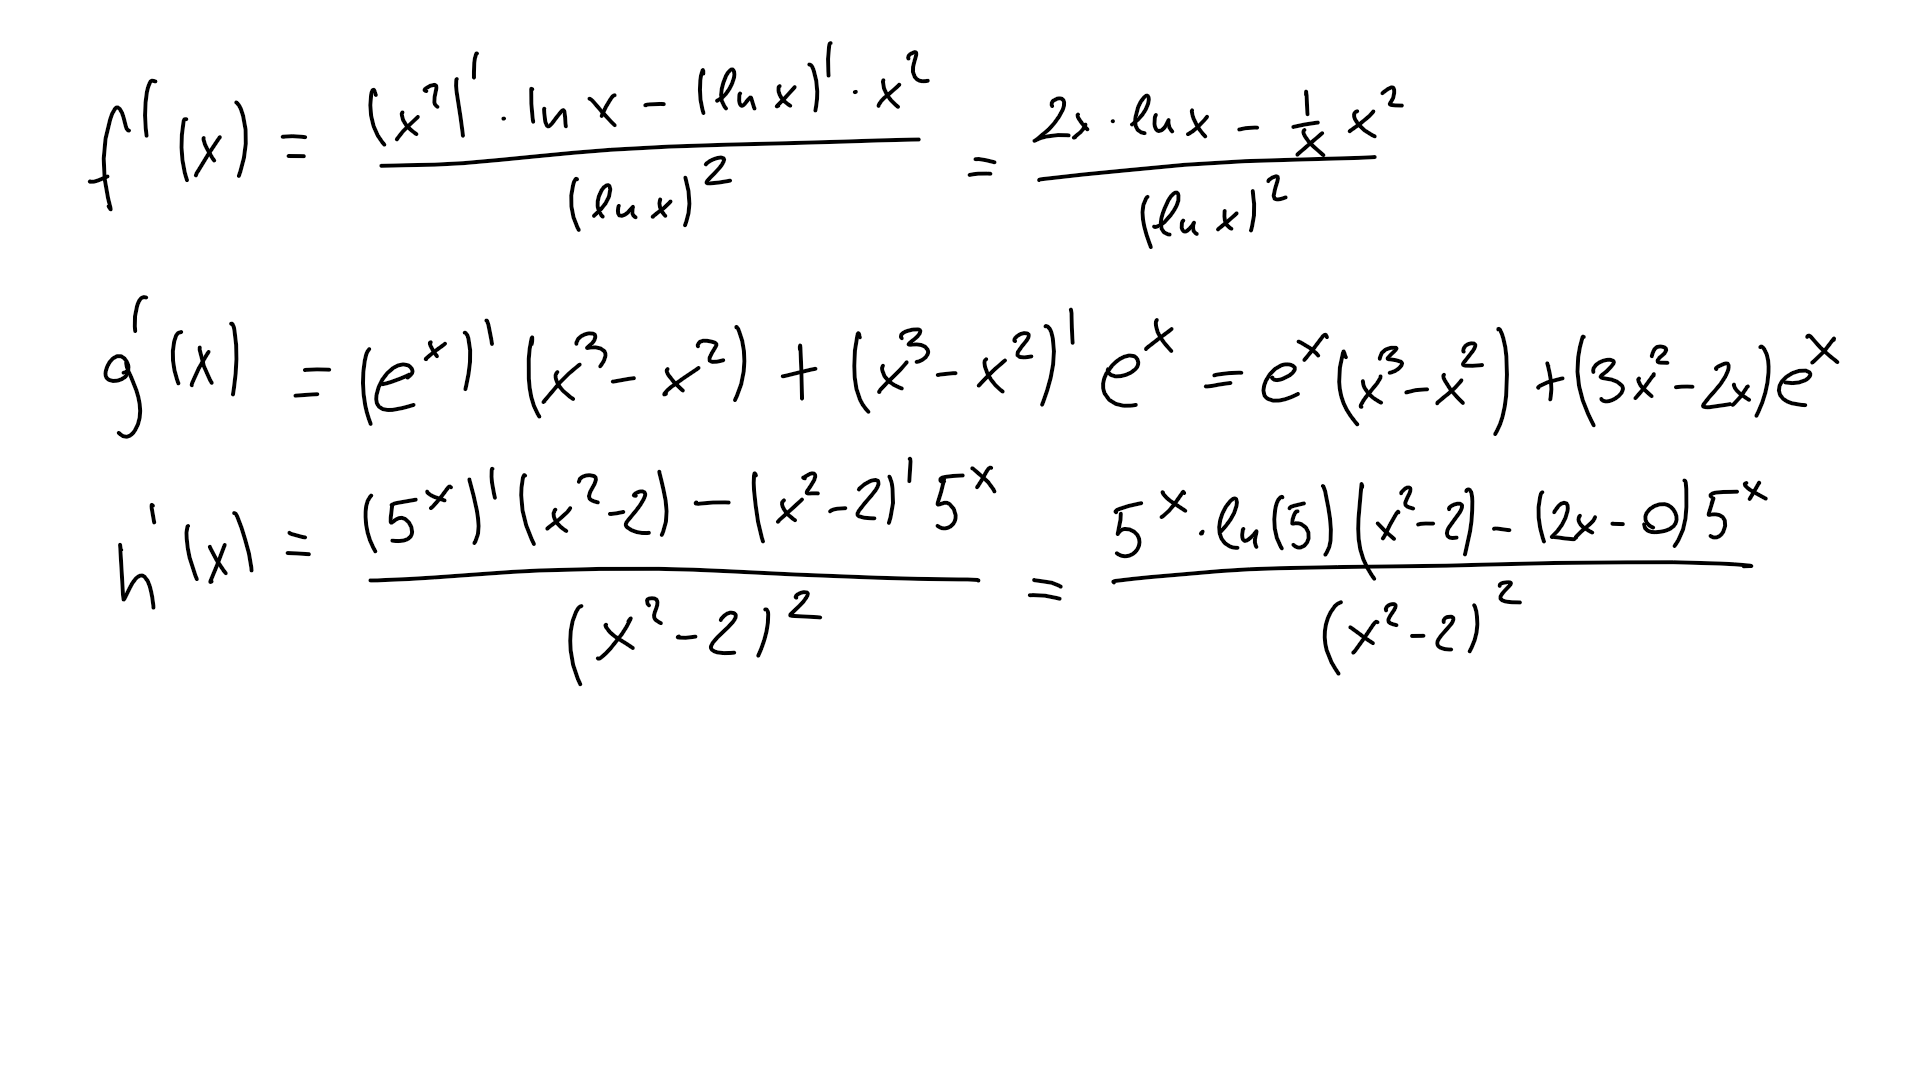 f'(x) = ((x²)' · ln x - (ln x)' · x²) / (ln x)² = (2x · ln x - 1/x x²) / (ln x)²
g'(x) = (e^x)' (x³ - x²) + (x³ - x²)' e^x = e^x (x³ - x²) + (3x² - 2x) e^x
h'(x) = ((5^x)' (x² - 2) - (x² - 2)' 5^x) / (x² - 2)² = (5^x · ln(5) (x² - 2) - (2x - 0) 5^x) / (x² - 2)²